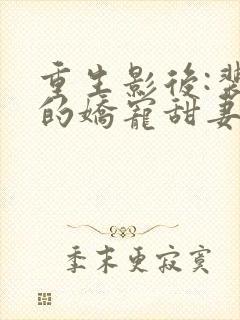 重生影後:
的嬌寵甜妻
季末更寂寞